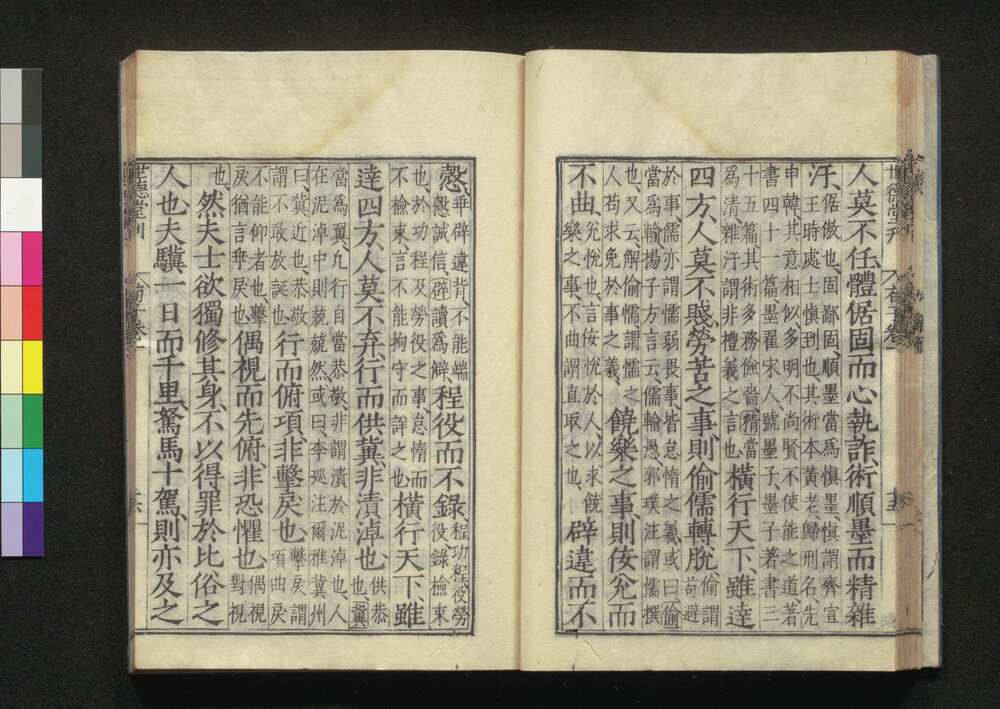 人莫不任體倨固而心埶詐術順墨而精雜
汙倨傲也固鄙固順墨當為慎墨慎謂齊宣
王時處士慎到也其術本黃老歸刑名先
申韓其意相似多明不尚賢不使能之道著
書四十一篇墨翟宋人號墨子墨子著書三
十五篇其術多務儉嗇精當
為清雜汙謂非禮義之言也橫行天下雖達
四方人莫不賤勞苦之事則偷儒轉脫偷謂
苟避
於事儒亦謂懦弱畏事皆怠惰之義或曰偷
當為輸揚子方言云儒輸愚郭璞注謂懦撰
也又云解偷懦謂懦之
人苟求免於事之義饒樂之事則佞兌而
不曲兌悅也言佞悅於人以求饒
樂之事不曲謂直取之也辟違而不
世德堂刊
荀子卷一
愨乖辟違背不能端
也愨誠信辟讀為僻程役而不錄程功程役勞
役錄檢束
也於功程及勞役之事怠惰而
不檢束言不能拘守而詳之也橫行天下雖
達四方人莫不弃行而供冀非漬淖也供恭
也冀
當為翼凡行自當恭敬非謂漬於泥淖也人
在泥淖中則兢兢然或曰李巡注爾雅冀州
曰冀近也恭敬
謂不敢放誕也行而俯項非擊戾也擊戾謂
項曲戾
不能仰者也擊
戾猶言乖戾也偶視而先俯非恐懼也偶視
對視
也然夫士欲獨修其身不以得罪於比俗之
人也夫驥一日而千里駑馬十駕則亦及之
世德堂刊
荀子卷一
十六